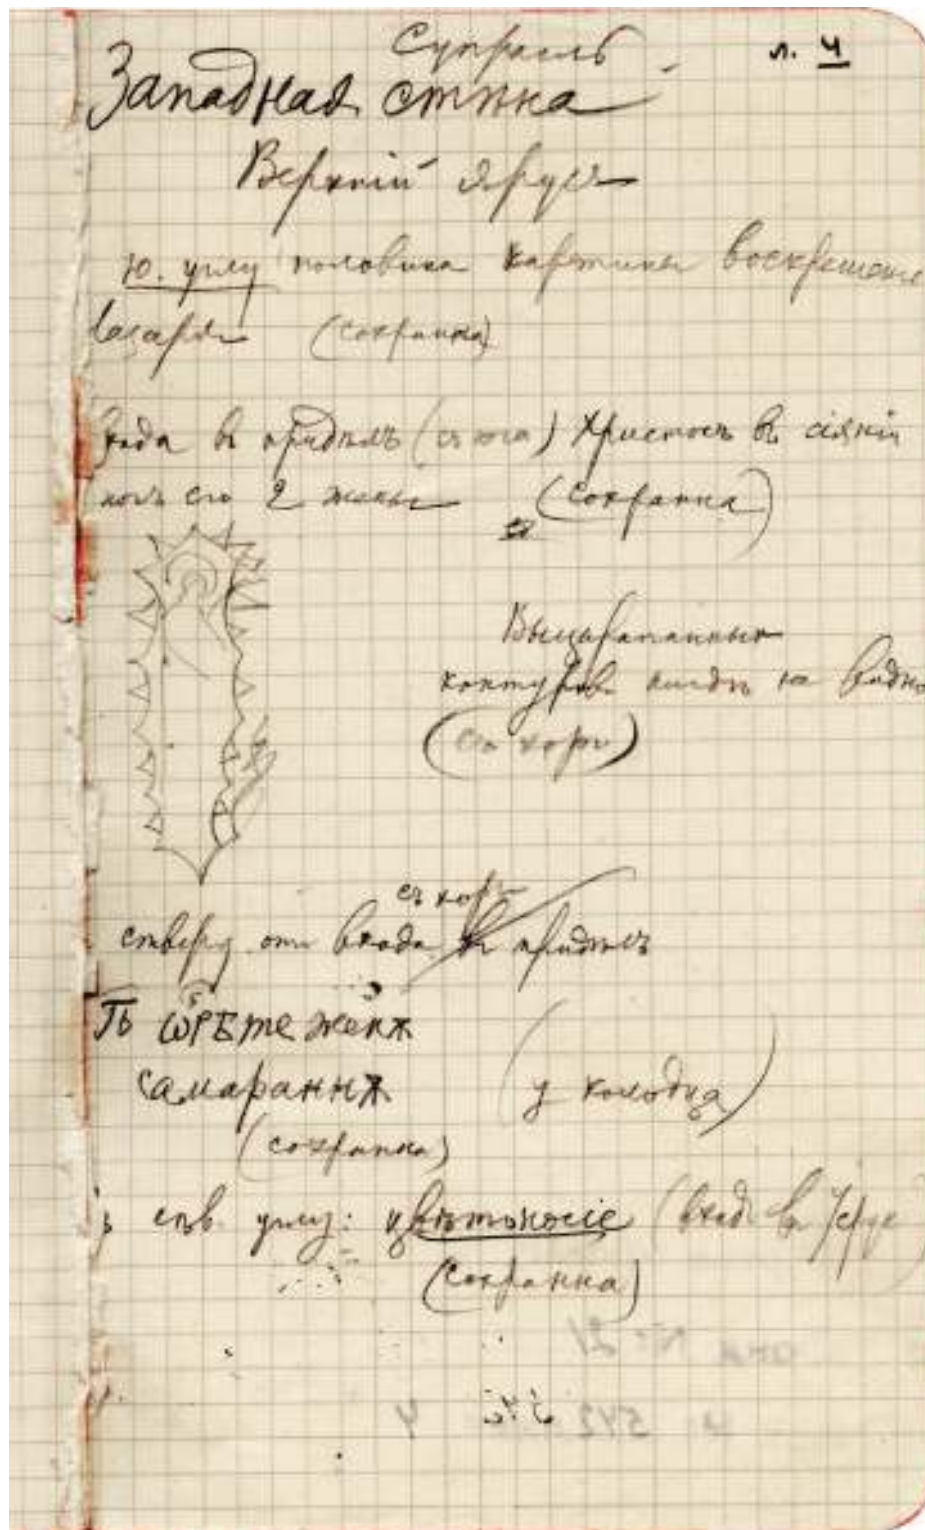 Супрасль
л. 4
Западная стѣна
Верхній ярусъ
ю. углу половина картины воскрешение
Лазаря (сохранна)
входа въ придѣлъ (съ юга) Христосъ въ сіяніи
2 жены (сохранна)
Выцарапанные
контуры на
(съ хоръ)
съ хоръ
сѣверу отъ входа въ придѣлъ
ГЬ ѠРѢТЕ женѫ
самаранинѫ (у колодца)
(сохранна)
сѣв. углу: цвѣтоносіе (входъ въ Іерус
(сохранна)
№ 21
542 4